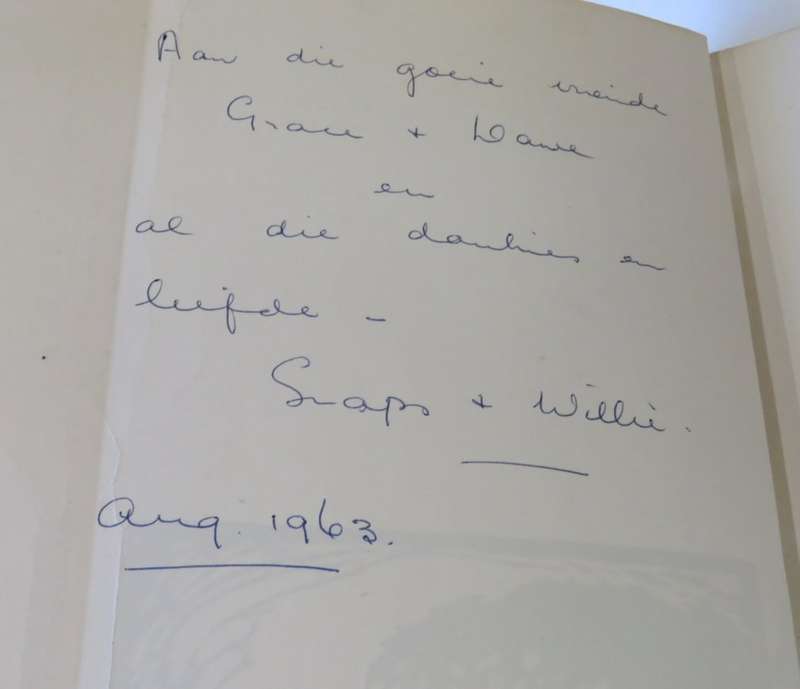 Aan die goeie vriende
Grace + Dawe
en
al die dankies en
liefde -
Snaps + Willie.
Aug. 1963.